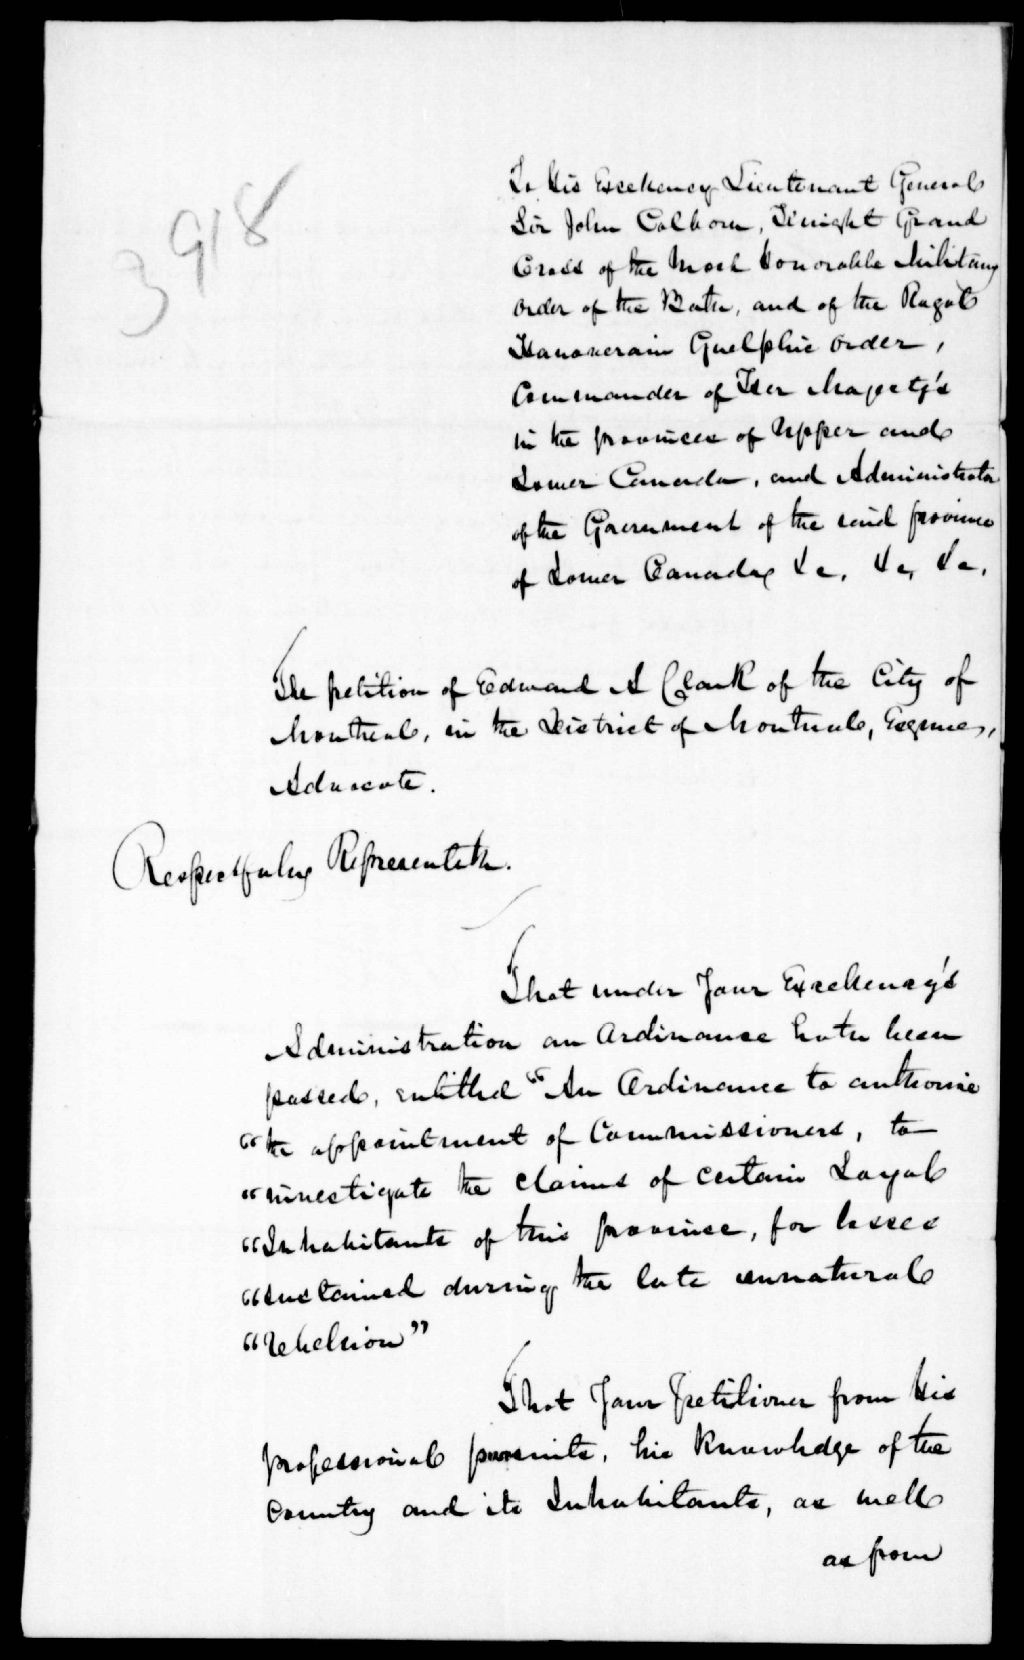 3918
To His Excellency Lieutenant General
Sir John Colborn, Knight Grand
Cross of the Most Honorable Military
order of the Bath, and of the Royal
Hanoverain Guelphic order,
Commander of Her Majesty's
in the provinces of Upper and
Lower Canada, and Administrator
of the Government of the said province
of Lower Canada &c, &c, &c,
The petition of Edward A Clark of the City of
Montreal, in the District of Montreal, Esquire,
Advocate.
Respectfuly Representeth.
That under Your Excellency's
Administration an ordinance hath been
passed, entitled "An Ordinance to authorise
"the appointment of Commissioners, to
"investigate the claims of certain Loyal
"Inhabitants of this province, for losses
"sustained during the late unnatural
"rebelsion"
That Your Petitioner from His
professional pursuits, his knowledge of the
Country and its Inhabitants, as well
as from